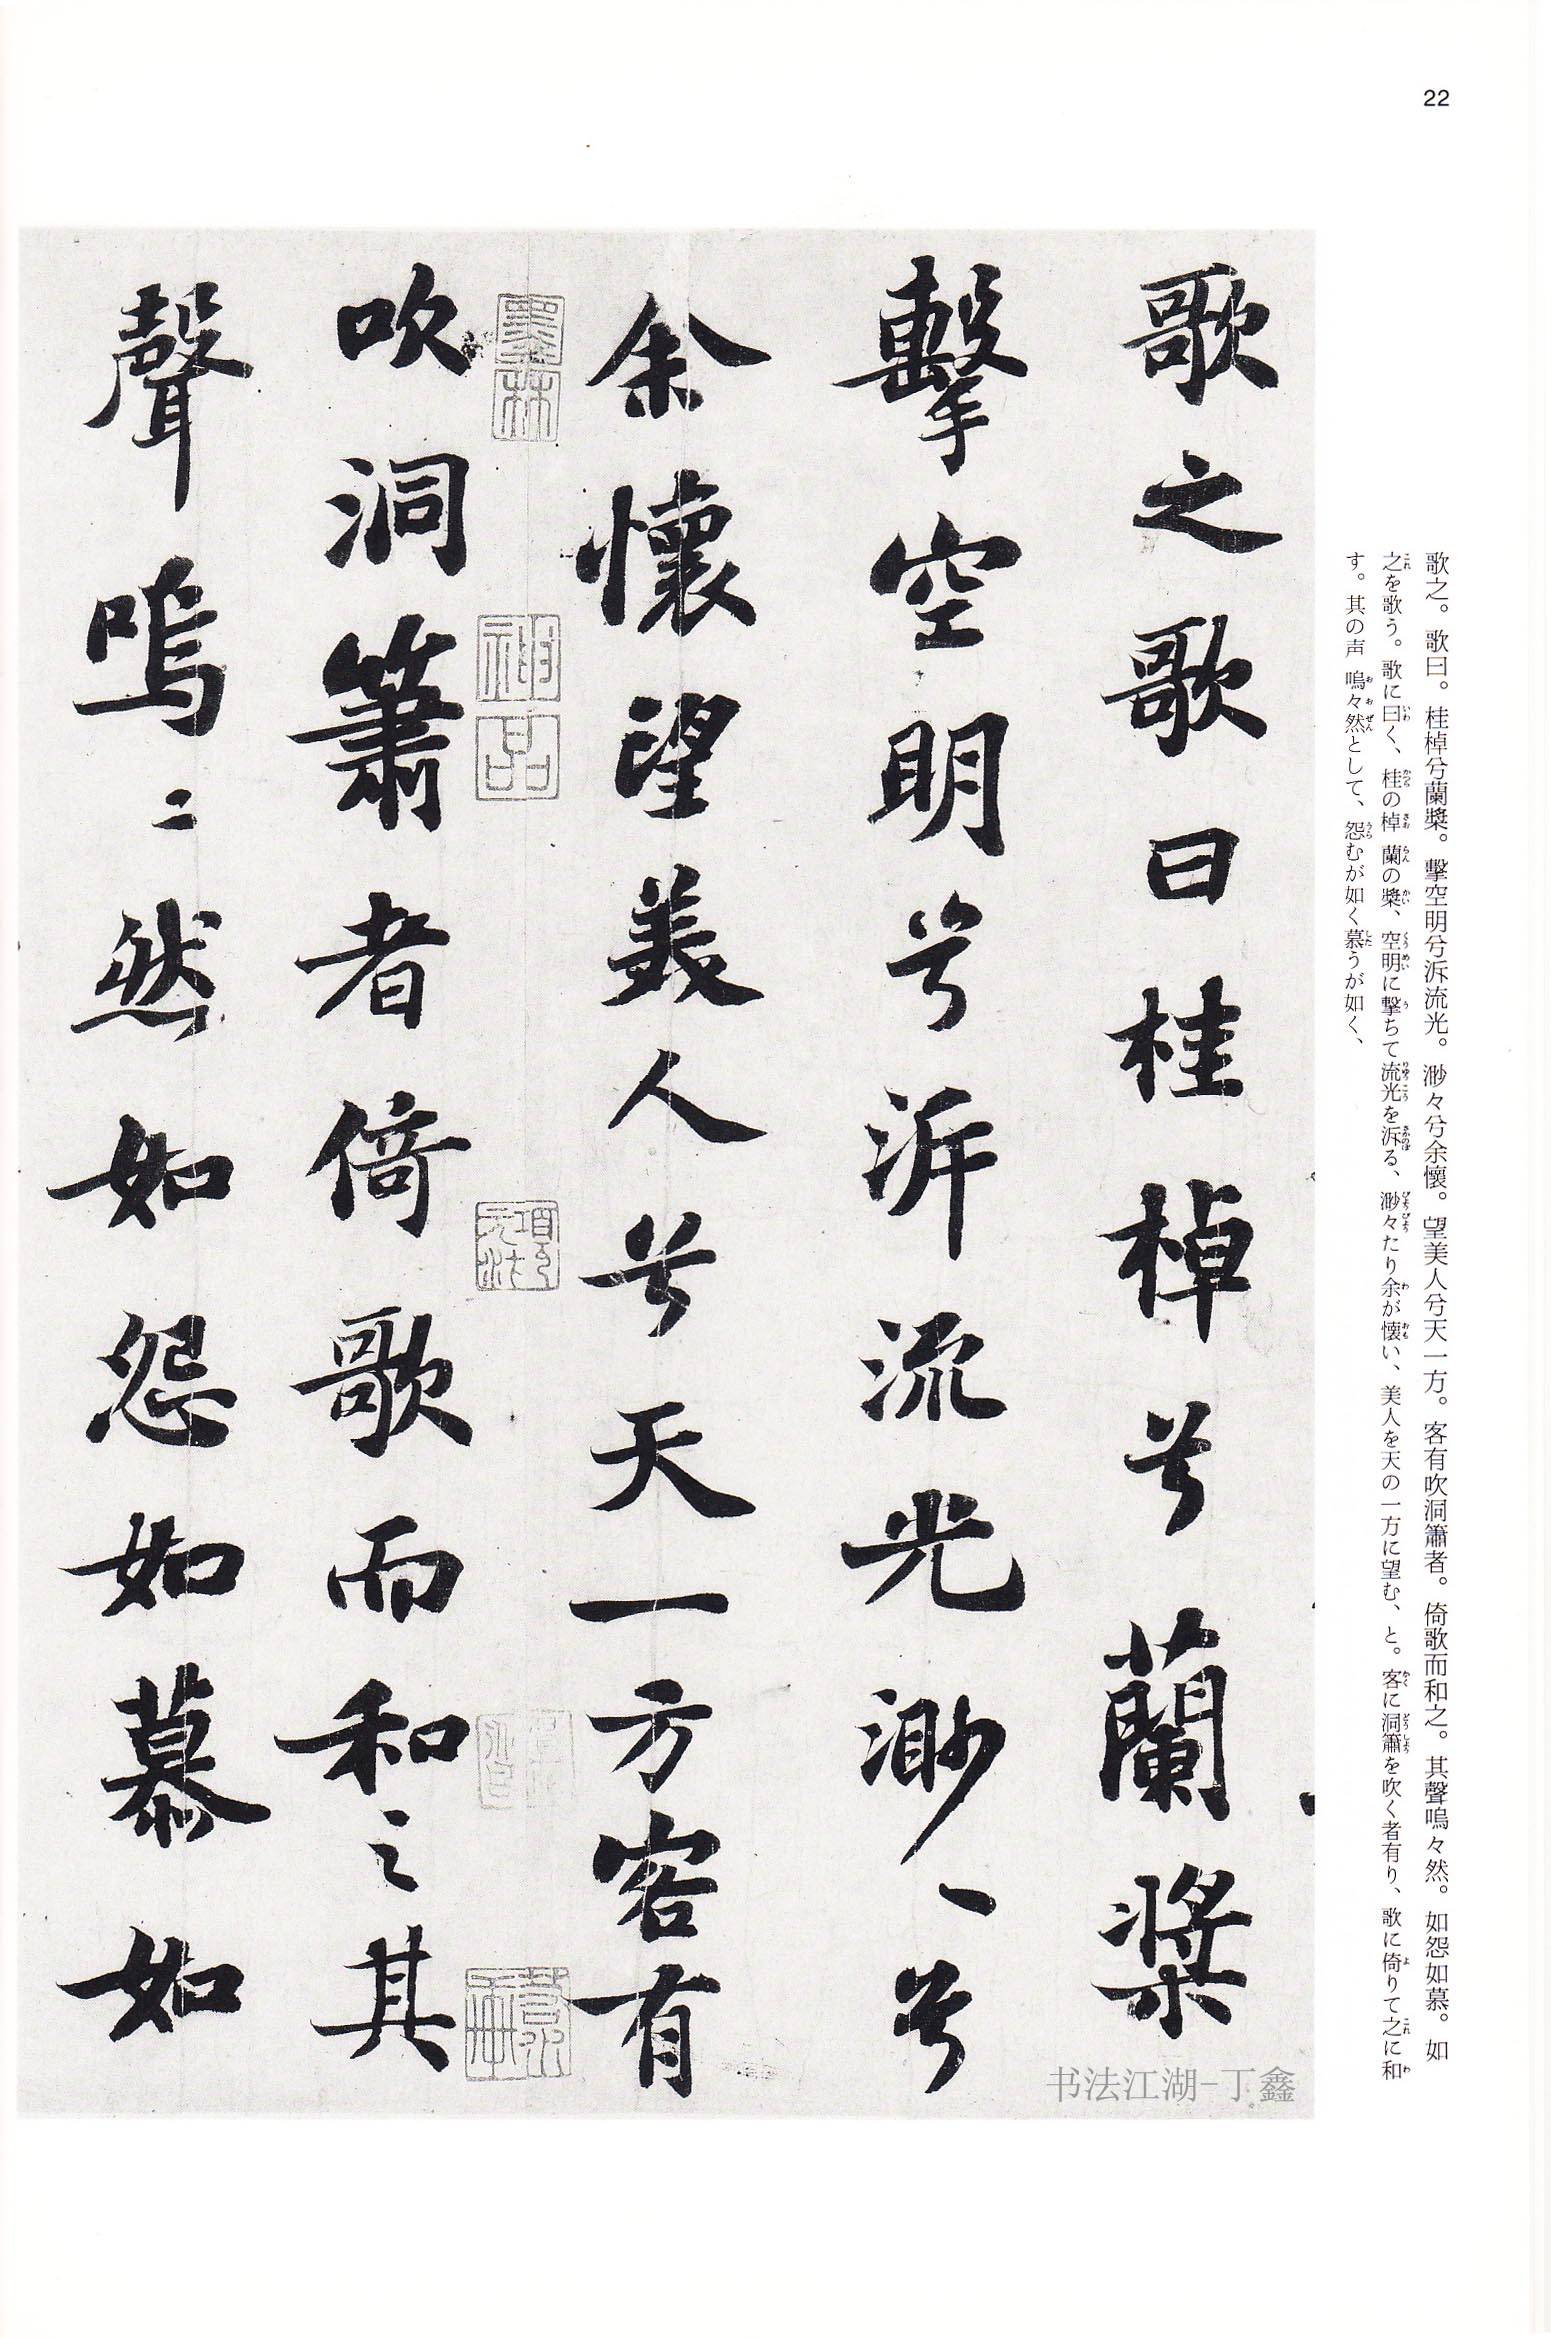 22
歌之。歌曰。桂棹兮蘭槳。擊空明兮泝流光。渺々兮余懷。望美人兮天一方。客有吹洞簫者。倚歌而和之。其聲嗚々然。如怨如慕。如
之を歌う。歌に曰く、桂の棹 蘭の槳、空明に撃ちて流光を泝る、渺々たり余が懐い、美人を天の一方に望む、と。客に洞簫を吹く者有り、歌に倚りて之に和
す。其の声 嗚々然として、怨むが如く慕うが如く、
歌之歌曰桂棹兮蘭槳
擊空明兮泝流光渺〻兮
余懷望美人兮天一方客有
吹洞簫者倚歌而和之其
聲嗚〻然如怨如慕如
墨林
神品
书法江湖-丁鑫